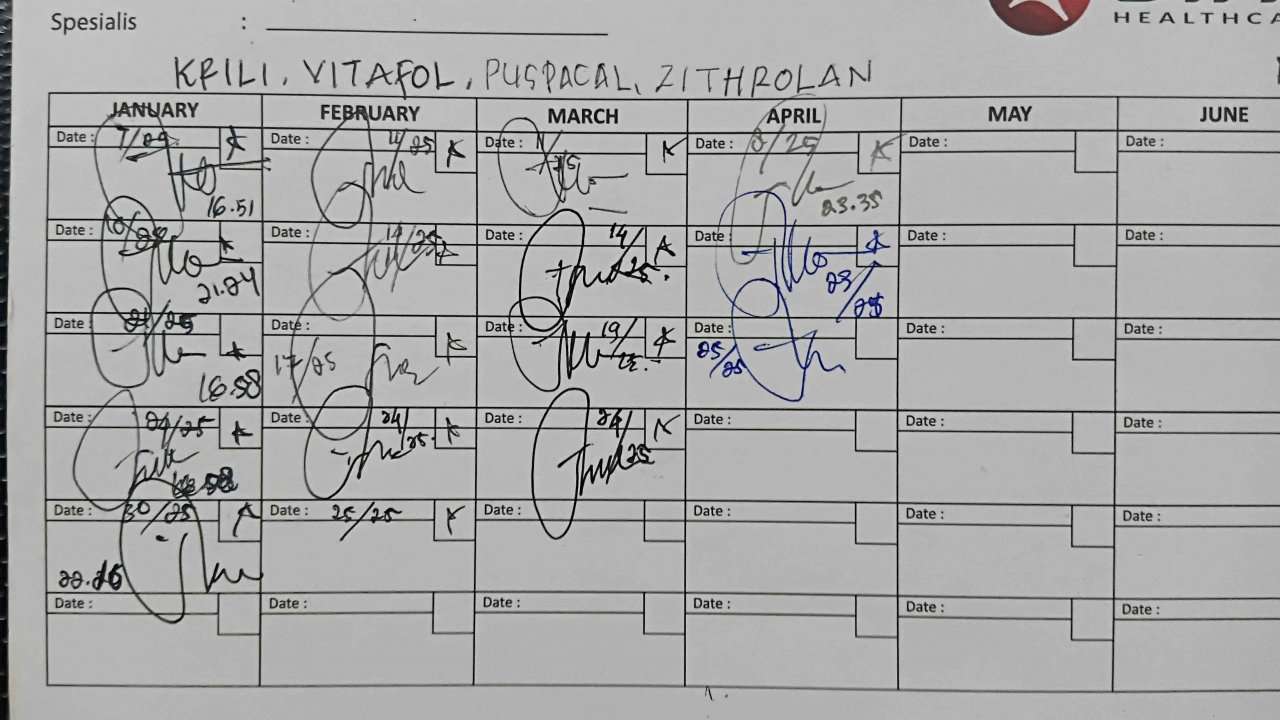 Spesialis :
HEALTHCA
KFILI, VITAFOL, PUSPACAL, ZITHROLAN
JANUARY FEBRUARY MARCH APRIL MAY JUNE
Date : 7/25 Date : 4/25 Date : Date : 8/25 Date : Date :
16.51 23.35
Date : 10/ Date : 14/25 Date : 14/25. Date : 23/25 Date : Date :
21.24
Date : 21/25 Date : 17/25 Date : 19/25. Date : 25/25 Date : Date :
16.58
Date : 24/25 Date : 24/25. Date : 24/25 Date : Date : Date :
Date : 30/25 Date : 25/25 Date : Date : Date : Date :
22.16
Date : Date : Date : Date : Date : Date :